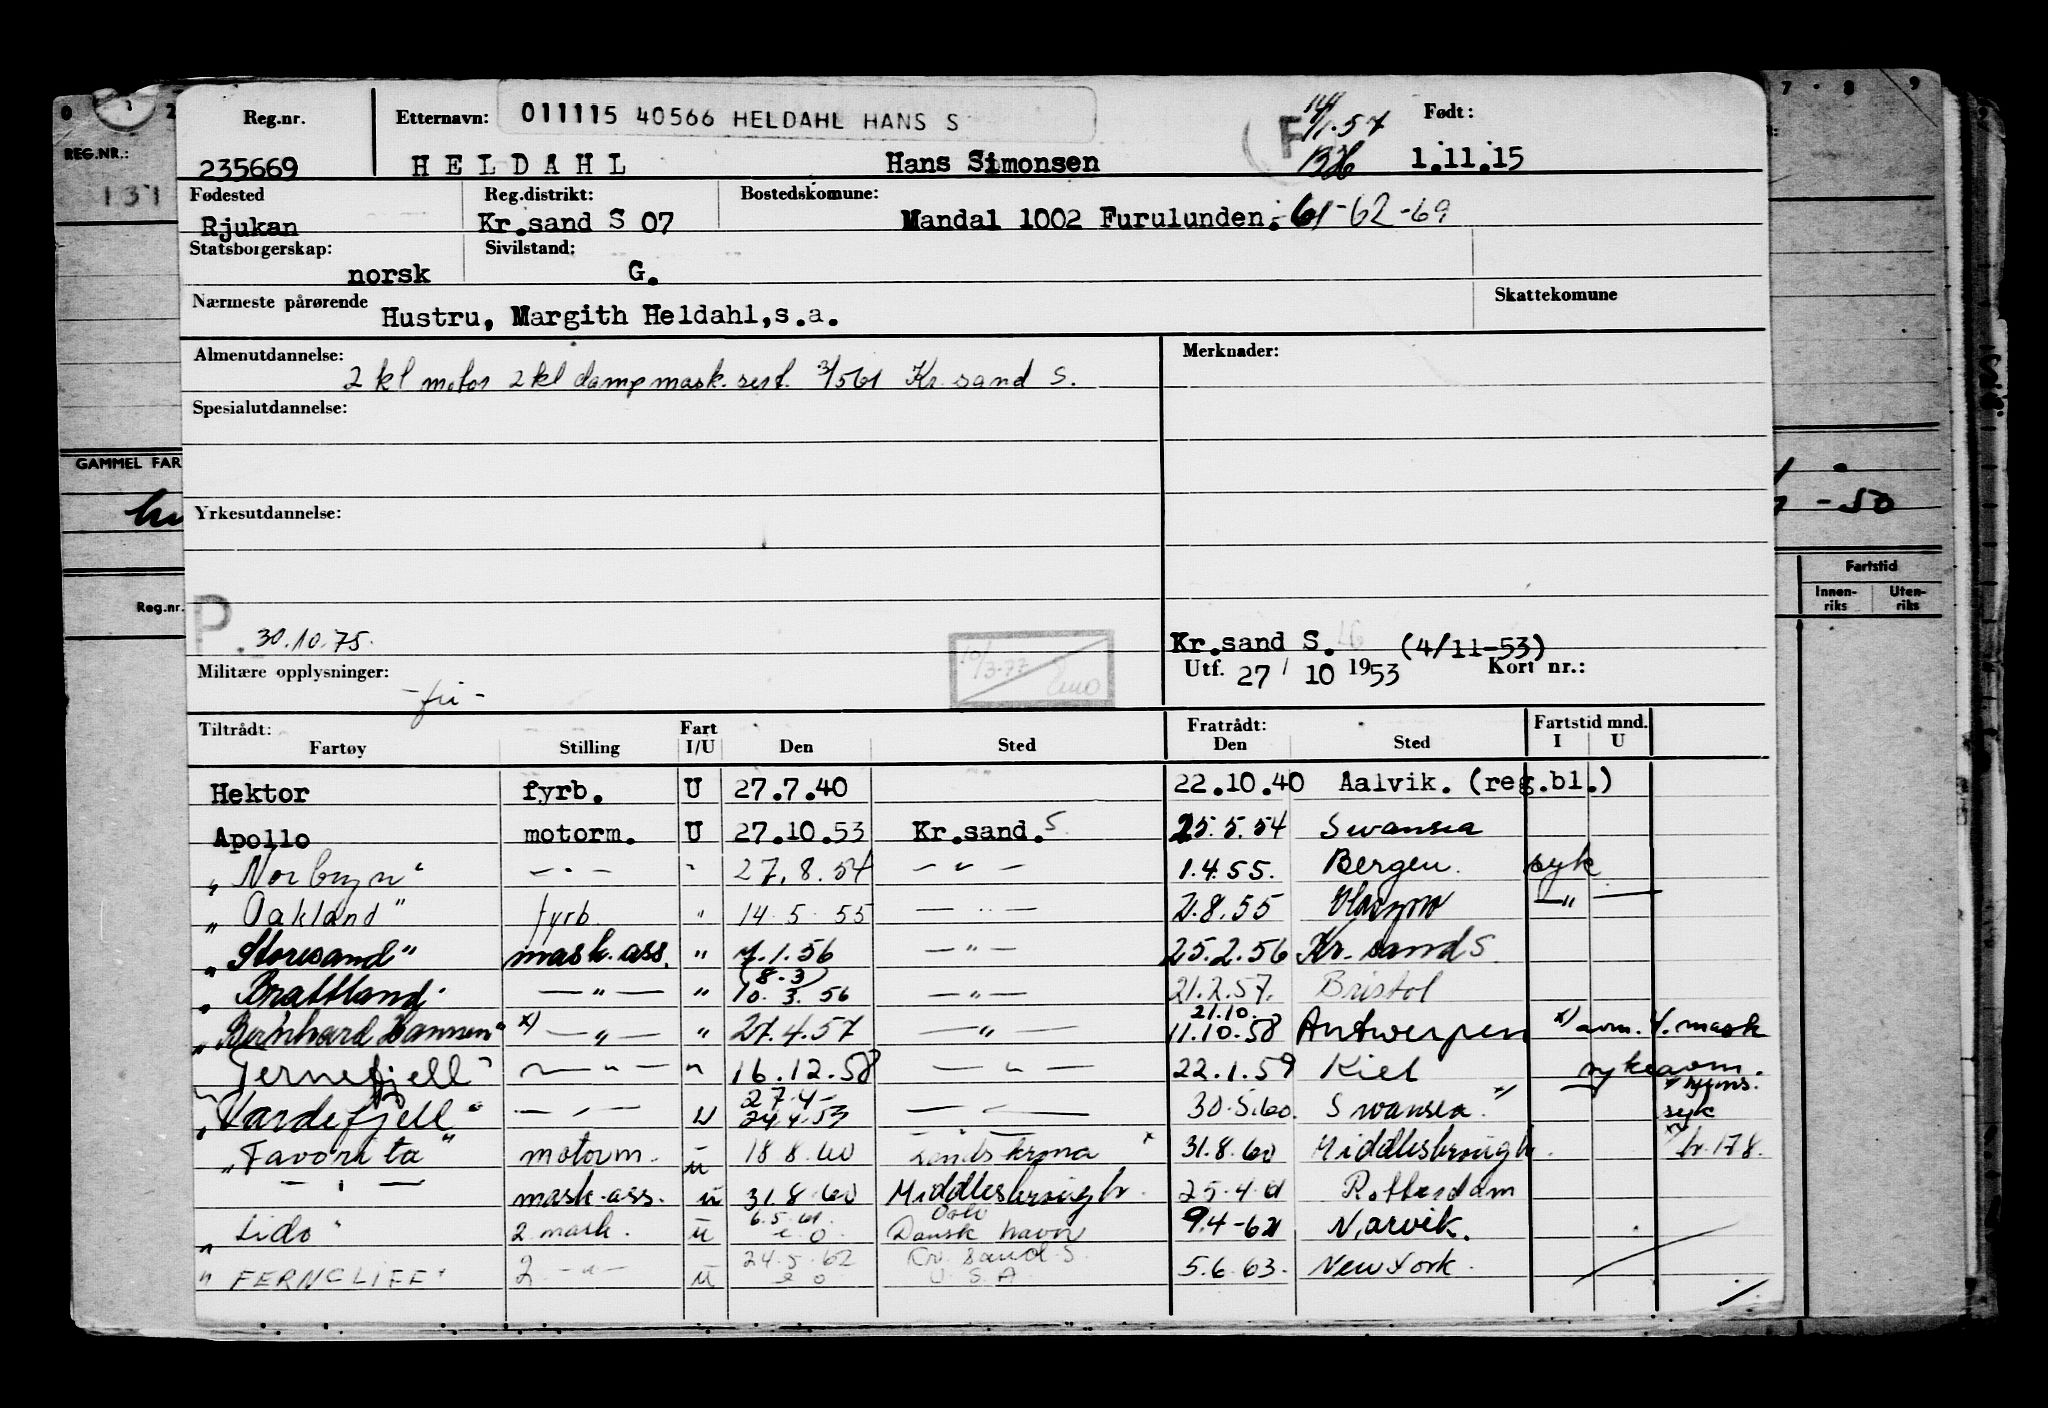 Reg.nr. Etternavn: 011115 40566 HELDAHL HANS S 1-57 Født:
235669 HELDAHL Hans Simonsen 1.11.15
Fødested Reg.distrikt: Bostedskomune:
Rjukan Kr.sand S 07 Mandal 1002 Furulunden. 61-62-69
Statsborgerskap: Sivilstand:
norsk G.
Nærmeste pårørende Skattekomune
Hustru, Margith Heldahl,s.a.
Almenutdannelse: Merknader:
2 kl motor 2 kl dampmask. sert. 3/561 Kr. sand S.
Spesialutdannelse:
Yrkesutdannelse:
P. 30.10.75.
Kr.sand S. (4/11-53)
Militære opplysninger: Utf. 27/10 1953 Kort nr.:
- fri -
10/3-77
Tiltrådt: Fart Fratrådt: Fartstid mnd.
Fartøy Stilling I/U Den Sted Den Sted I U
Hektor fyrb. U 27.7.40 22.10.40 Aalvik. (reg.bl.)
Apollo motorm. U 27.10.53 Kr.sand.S 25.5.54 Swansea
"Norbryn" - " - " 27.8.54 - " - 1.4.55. Bergen. syk
"Oakland" fyrb " 14.5.55 - " - 2.8.55 Glasgow - " -
"Storesand" mask.ass. " 7.1.56 - " - 25.2.56 Kr.sand S.
(8.3)
"Brattland" - " - " 10.3.56 - " - 21.2.57. Bristol
21.10.
"Bernhard Hannen" x) - " - " 27.4.57 - " - 11.10.58 Antwerpen x) avm. 4. mask
"Ternefjell" - " - " 16.12.58 - " - 22.1.59 Kiel sykeavm.
27.4-
"Vardefjell" - " - U 24.4.59 - " - 30.5.60. Swansea. x) syk
"Favorita" motorm. U 18.8.60 Landskrona x 31.8.60 Middlesbrough. br. 178.
- " - mask.ass. U 31.8.60 Middlesbrough. 25.4.61 Rotterdam
6.5.61. Oslo
"Lido" 2 mask. U e.o. Dansk havn 9.4-62 Narvik.
24.5.62 Kr. Sand S.
"FERNCLIFF" 2 - " - U e o U.S.A. 5.6.63. New York.
REG.NR.:
131
GAMMEL FAR
Reg.nr.
7 8 9
-50
Fartstid
Innen-
riks
Uten-
riks